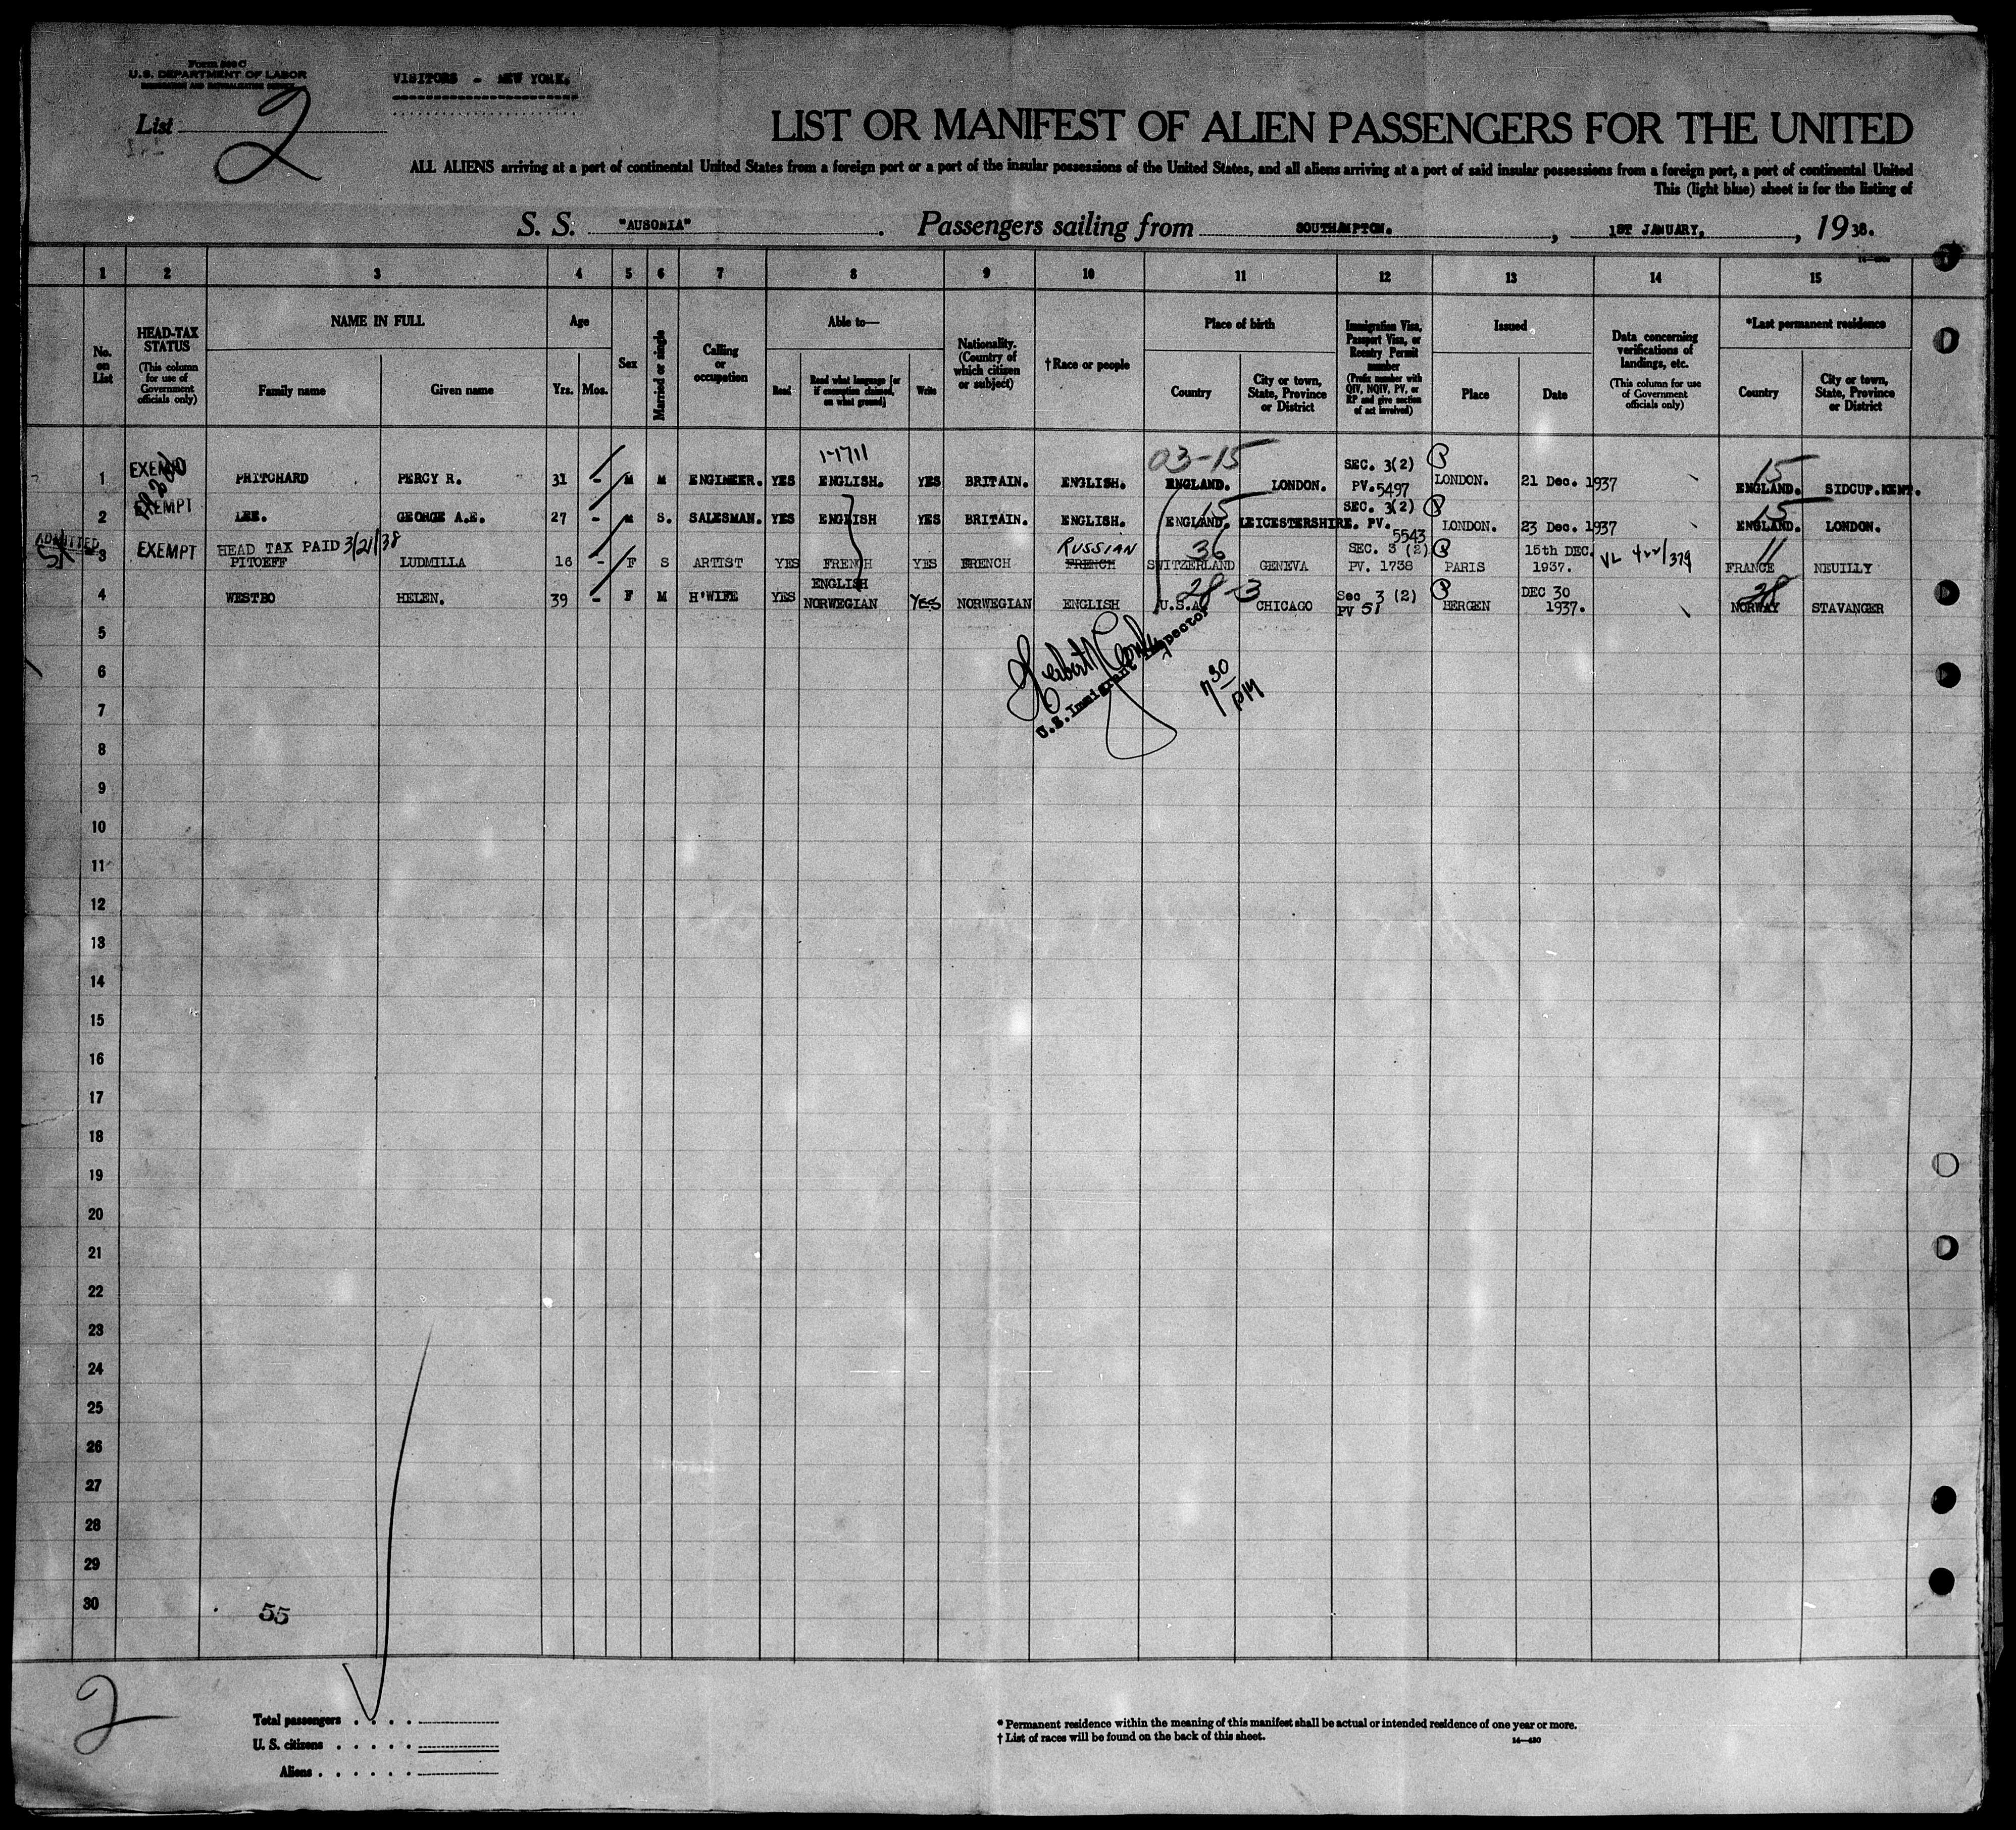 Form 500 C
U.S. DEPARTMENT OF LABOR
IMMIGRATION AND NATURALIZATION SERVICE
VISITORS - NEW YORK.
List 2
LIST OR MANIFEST OF ALIEN PASSENGERS FOR THE UNITED
ALL ALIENS arriving at a port of continental United States from a foreign port or a port of the insular possessions of the United States, and all aliens arriving at a port of said insular possessions from a foreign port, a port of continental United
This (light blue) sheet is for the listing of
S. S. "AUSONIA". Passengers sailing from SOUTHAMPTON. , 1ST JANUARY. , 1938.
1 2 3 4 5 6 7 8 9 10 11 12 13 14 15
No. on List
HEAD-TAX STATUS (This column for use of Government officials only)
NAME IN FULL
Family name Given name
Age
Yrs. Mos.
Sex
Married or single
Calling or occupation
Able to—
Read Read what language [or if exemption claimed, on what ground] Write
Nationality. (Country of which citizen or subject)
† Race or people
Place of birth
Country City or town, State, Province or District
Immigration Visa, Passport Visa, or Reentry Permit number (Prefix number with QIV, NQIV, PV, or RP and give section of act involved)
Issued
Place Date
Data concerning verifications of landings, etc. (This column for use of Government officials only)
*Last permanent residence
Country City or town, State, Province or District
1-1711 03-15 SEC. 3(2) 15
1 EXEMPT PRITCHARD PERCY R. 31 - M M ENGINEER. YES ENGLISH. YES BRITAIN. ENGLISH. ENGLAND. LONDON. PV.5497 LONDON. 21 Dec. 1937 ENGLAND. SIDCUP.KENT.
EXEMPT 15 SEC. 3(2) 15
2 LEE. GEORGE A.E. 27 - M S. SALESMAN. YES ENGLISH YES BRITAIN. ENGLISH. ENGLAND. LEICESTERSHIRE. PV. 5543 LONDON. 23 Dec. 1937 ENGLAND. LONDON.
ADMITTED EXEMPT HEAD TAX PAID 3/21/38 RUSSIAN 36 SEC. 3 (2) 15th DEC. VL 422/379 11
3 PITOEFF LUDMILLA 16 - F S ARTIST YES FRENCH YES FRENCH FRENCH SWITZERLAND GENEVA PV. 1738 PARIS 1937. FRANCE NEUILLY
ENGLISH 28-3 Sec 3 (2) DEC 30 28
4 WESTBO HELEN. 39 - F M H'WIFE YES NORWEGIAN Yes NORWEGIAN ENGLISH U.S.A. CHICAGO PV 51 BERGEN 1937. NORWAY STAVANGER
U.S. Immigrant Inspector
7 30 PM
5
6
7
8
9
10
11
12
13
14
15
16
17
18
19
20
21
22
23
24
25
26
27
28
29
30
55
2
Total passengers . . . .
U. S. citizens . . . . .
Aliens . . . . . .
* Permanent residence within the meaning of this manifest shall be actual or intended residence of one year or more.
† List of races will be found on the back of this sheet.
14—430